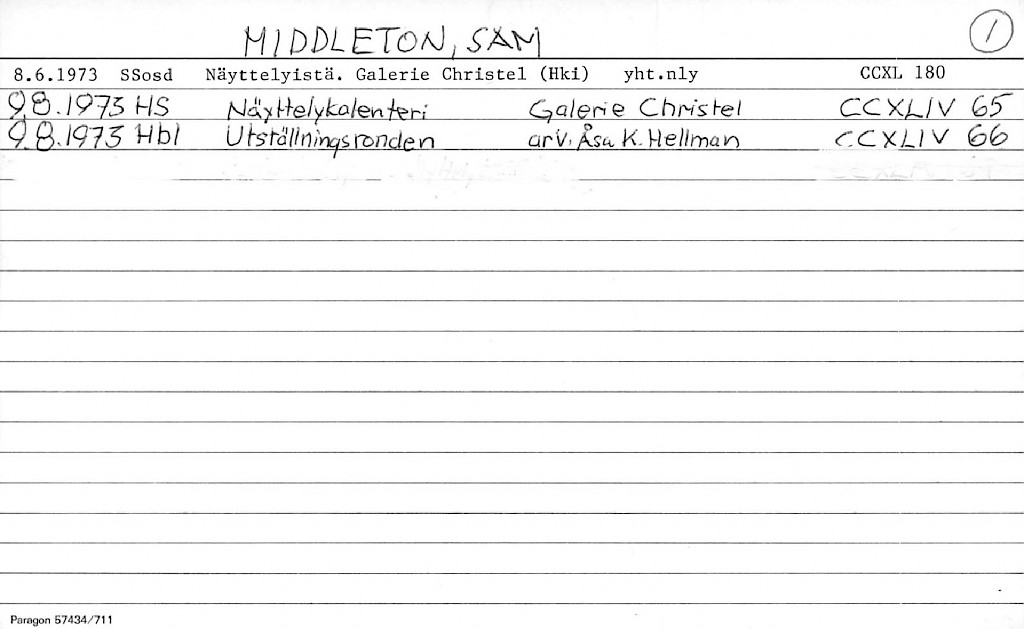 MIDDLETON, SAM 1
8.6.1973 SSosd Näyttelyistä. Galerie Christel (Hki) yht.nly CCXL 180
9.8.1973 HS Näyttelykalenteri Galerie Christel CCXLIV 65
9.8.1973 Hbl Utställningsronden arv. Åsa K. Hellman CCXLIV 66
Paragon 57434/711